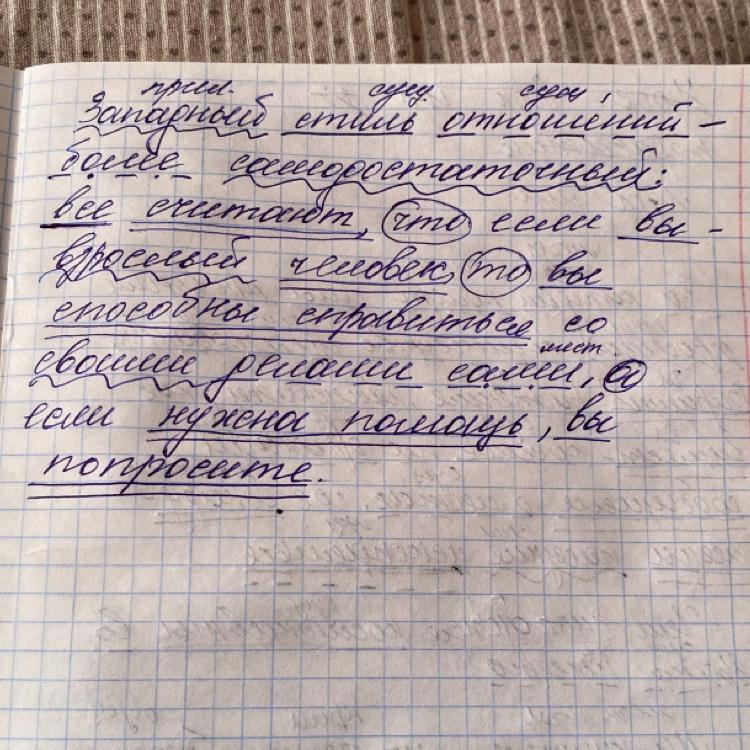 прил. сущ. сущ.
Западный стиль отношений –
более самодостаточный:
все считают, что если вы –
взрослый человек, то вы
способны справиться со
мест.
своими делами сами, а
если нужна помощь, вы
попросите.